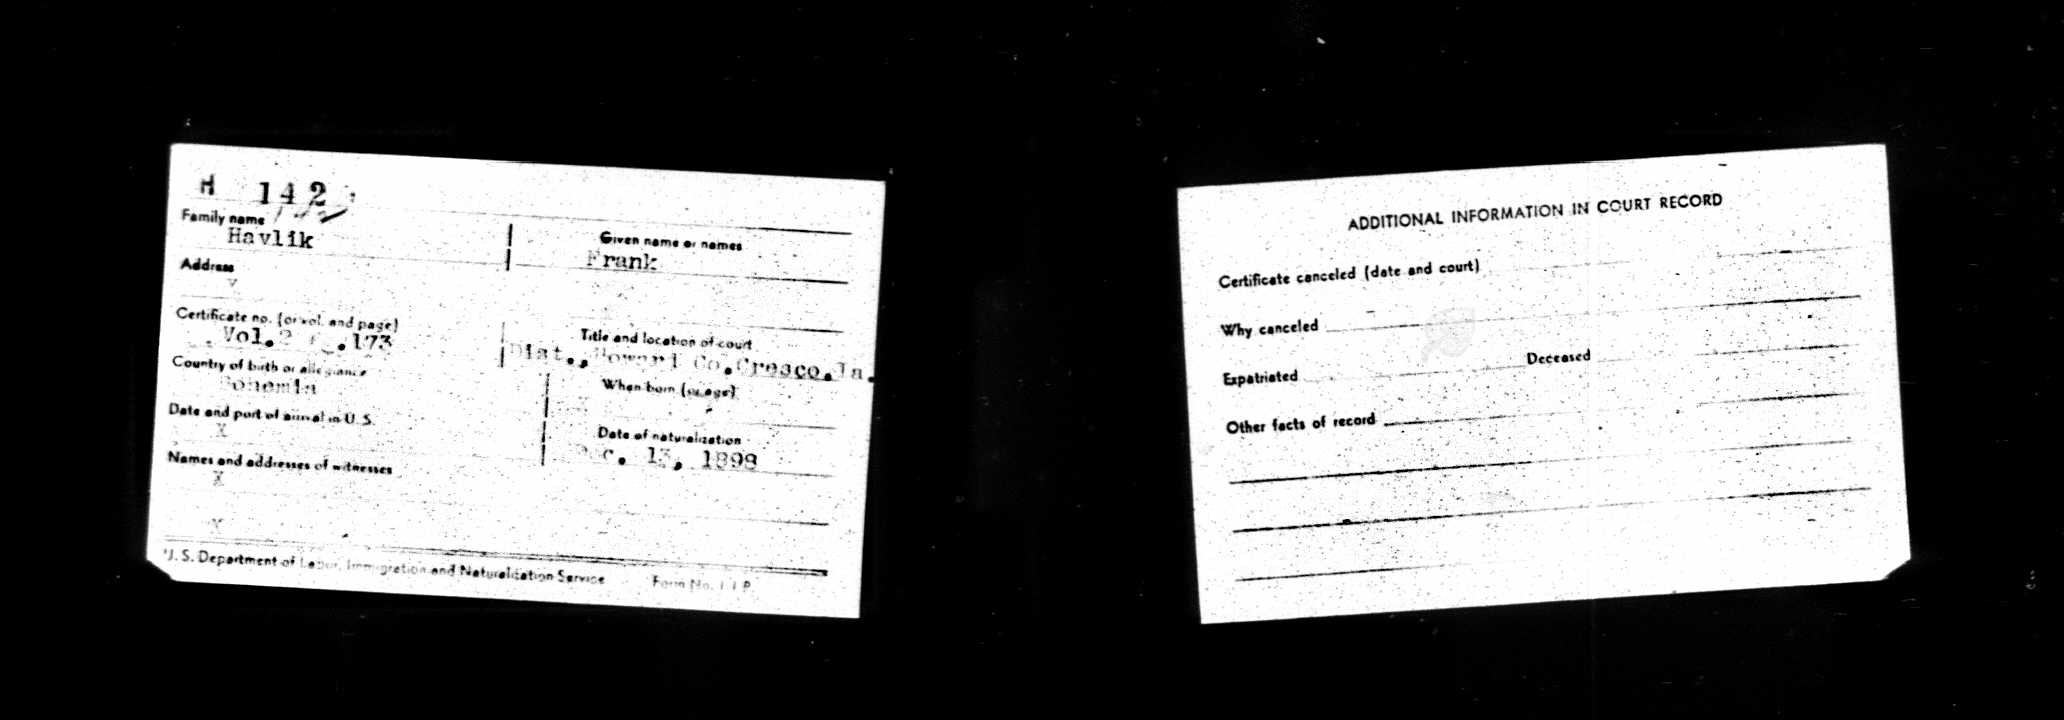 H 142
Family name
Given name or names
Havlik
Frank
Address
Certificate no. (or vol. and page)
Title and location of court
Vol. .173
Dist., Howard Co. Cresco, Ia.
Country of birth or allegiance
When born (or age)
Bohemia
Date and port of arrival in U.S.
Date of naturalization
X
Dec. 13, 1898
Names and addresses of witnesses
X
U. S. Department of Labor, Immigration and Naturalization Service Form No. 1 I P
ADDITIONAL INFORMATION IN COURT RECORD
Certificate canceled (date and court)
Why canceled
Expatriated Deceased
Other facts of record